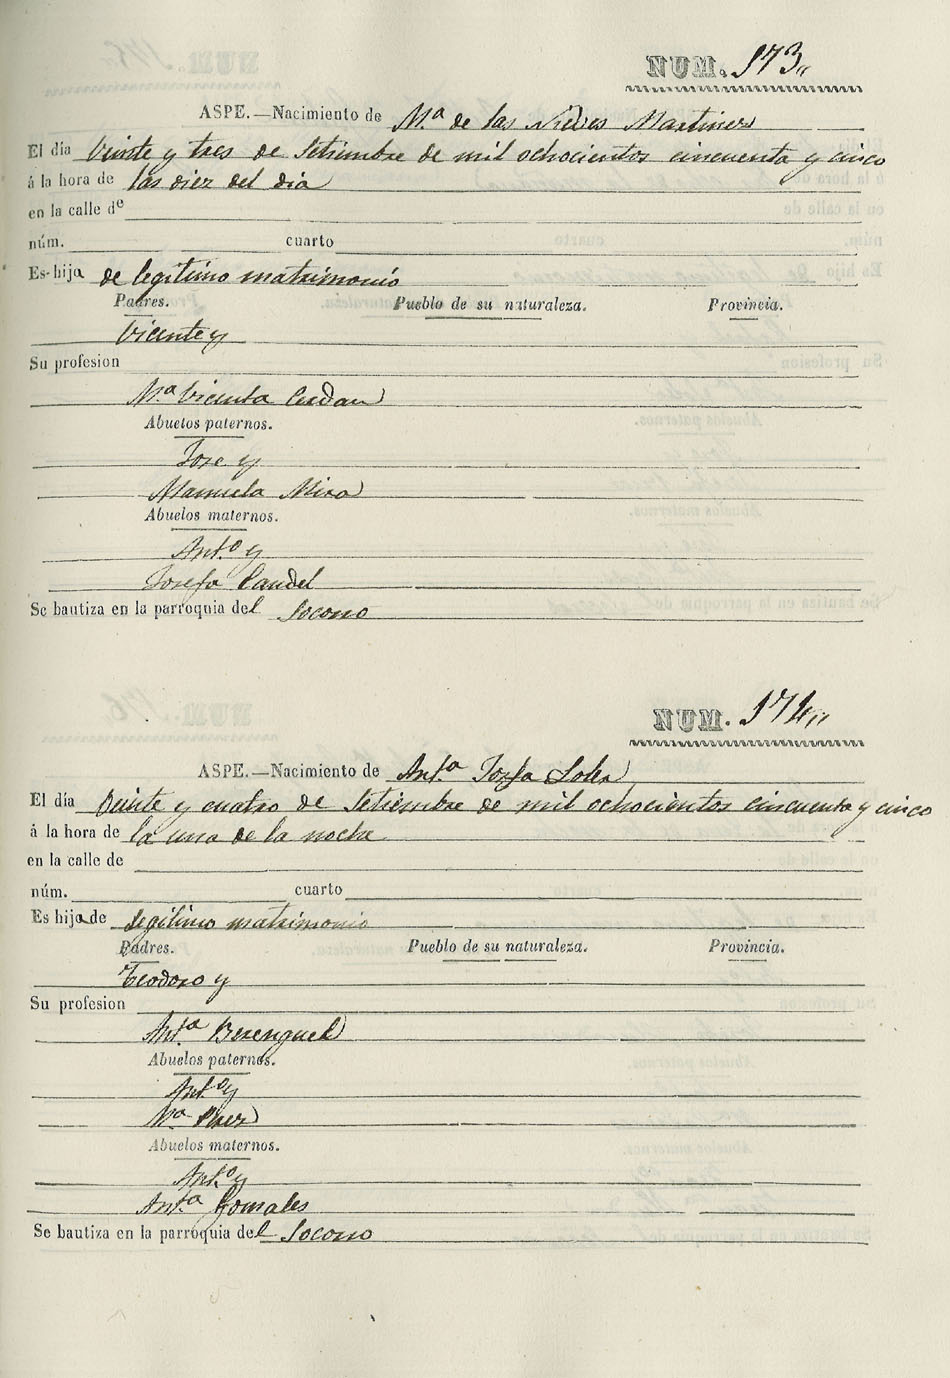 NUM. 173
ASPE.—Nacimiento de Mª de las Nieves Martines
El día Veinte y tres de Setiembre de mil ochocientos cincuenta y cinco
á la hora de las diez del dia
en la calle de
núm. cuarto
Es hija de legitimo matrimonio
Padres. Pueblo de su naturaleza. Provincia.
Vicente y
Su profesion
Mª Vicenta Cerdan
Abuelos paternos.
Jose y
Manuela Mira
Abuelos maternos.
Antº y
Josefa Candel
Se bautiza en la parroquia del Socorro
NUM. 174
ASPE.—Nacimiento de Antª Josefa Soler
El día Veinte y cuatro de Setiembre de mil ochocientos cincuenta y cinco
á la hora de la una de la noche
en la calle de
núm. cuarto
Es hija de legitimo matrimonio
Padres. Pueblo de su naturaleza. Provincia.
Teodoro y
Su profesion
Antª Berenguel
Abuelos paternos.
Antº y
Mª
Abuelos maternos.
Antº y
Antª Gonsales
Se bautiza en la parroquia del Socorro